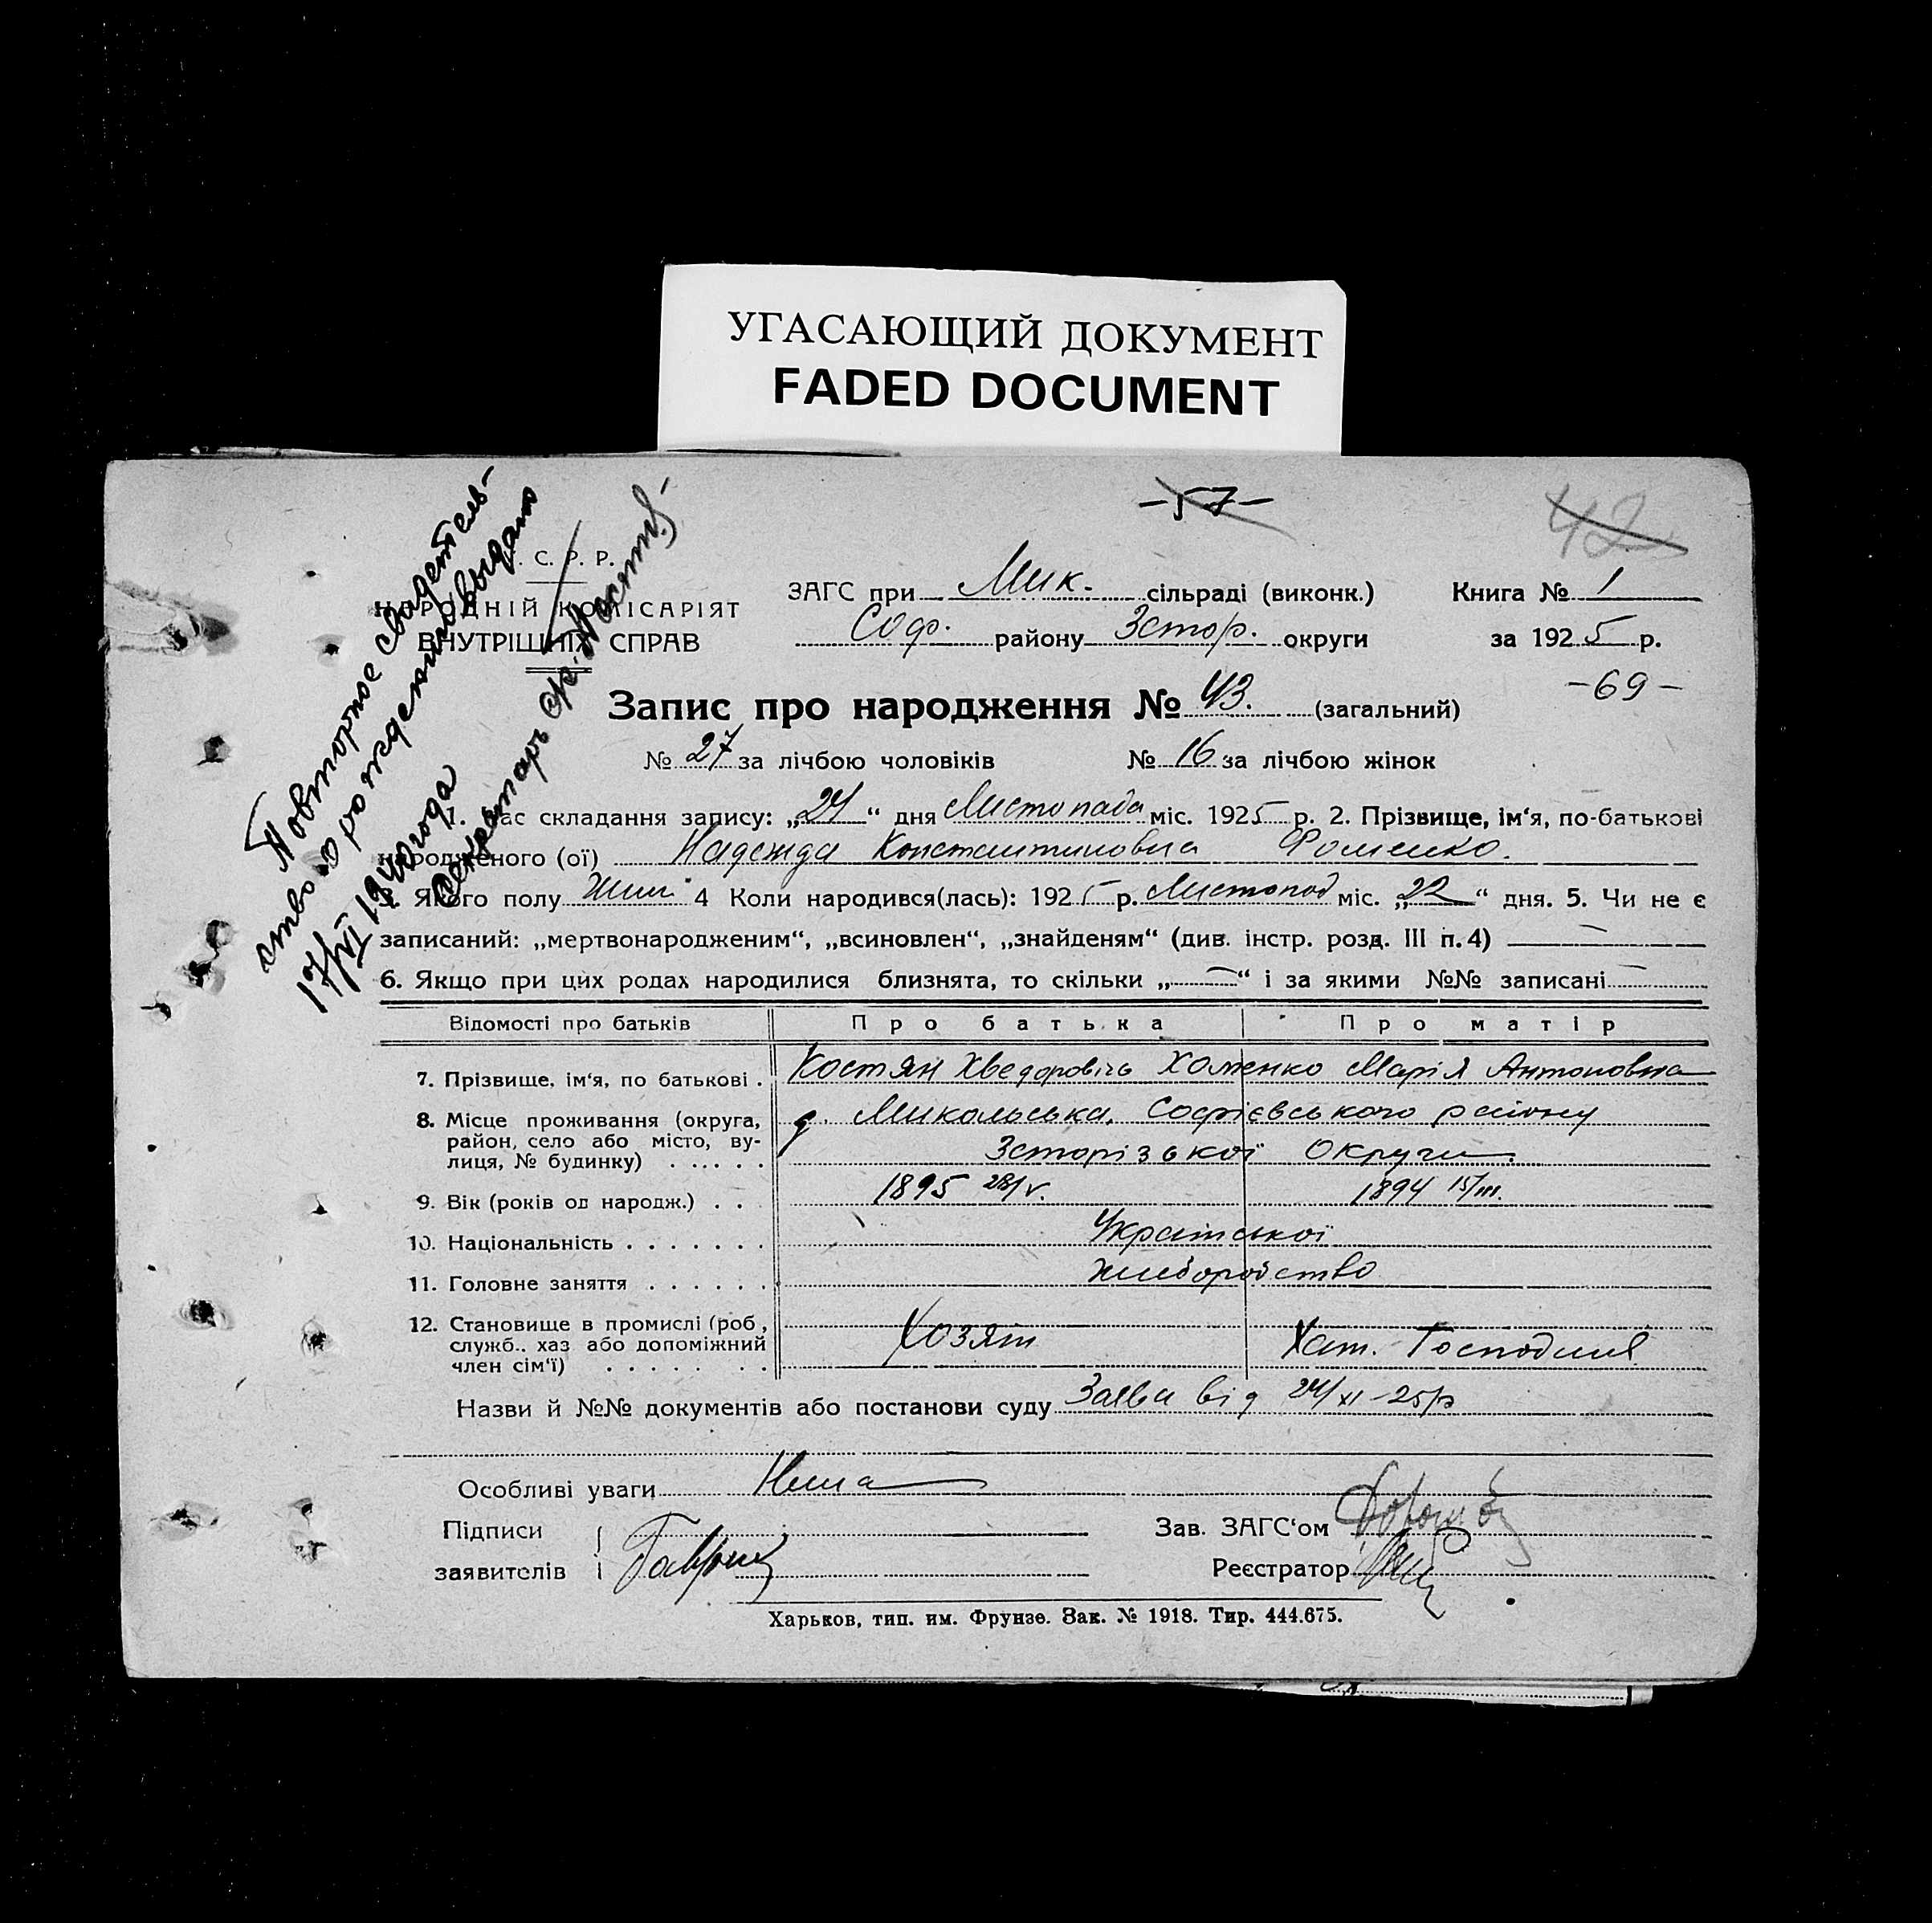 УГАСАЮЩИЙ ДОКУМЕНТ
FADED DOCUMENT
-57-
42
Повторное свидетель-
ство о рождении выдано
17/VI 1940 года
Секретарь
С. Р. Р.
НАРОДНІЙ КОМІСАРІЯТ
ВНУТРІШНІХ СПРАВ
ЗАГС при Мик. сільраді (виконк.) Книга № 1
Соф. району Зстор. округи за 1925 р.
-69-
Запис про народження № 43. (загальний)
№ 27 за лічбою чоловіків № 16 за лічбою жінок
1. Час складання запису: „24“ дня Листопада міс. 1925 р. 2. Прізвище, ім‘я, по-батькові
народженого (ої) Надежда Константиновна Фоменко.
Якого полу Жін 4 Коли народився(лась): 1925 р. Листопад міс. „22“ дня. 5. Чи не є
записаний: „мертвонародженим“, „всиновлен“, „знайденям“ (див. інстр. розд. III п. 4) —
6. Якщо при цих родах народилися близнята, то скільки „—“ і за якими №№ записані —
Відомості про батьків Про батька Про матір
7. Прізвище, ім‘я, по батькові . Костян Хведоровічь Хоменко Марія Антоновна
8. Місце проживання (округа, д. Микольська, Софієвського району
район, село або місто, ву-
лиця, № будинку) . . . . . Зсторізької Округи.
9. Вік (років од народж.) . . 1895 28/V. 1894 15/III.
10. Національність . . . . . . . Української
11. Головне заняття . . . . . . хліборобство
12. Становище в промислі (роб.,
служб., хаз або допоміжний Хозяін Хат. Господиня
член сім‘ї) . . . . . . .
Назви й №№ документів або постанови суду Заява від 24/XI-25р
Особливі уваги Нема
Підписи
Зав. ЗАГС‘ом
заявителів
Реєстратор
Харьков, тип. им. Фрунзе. Зак. № 1918. Тир. 444.675.